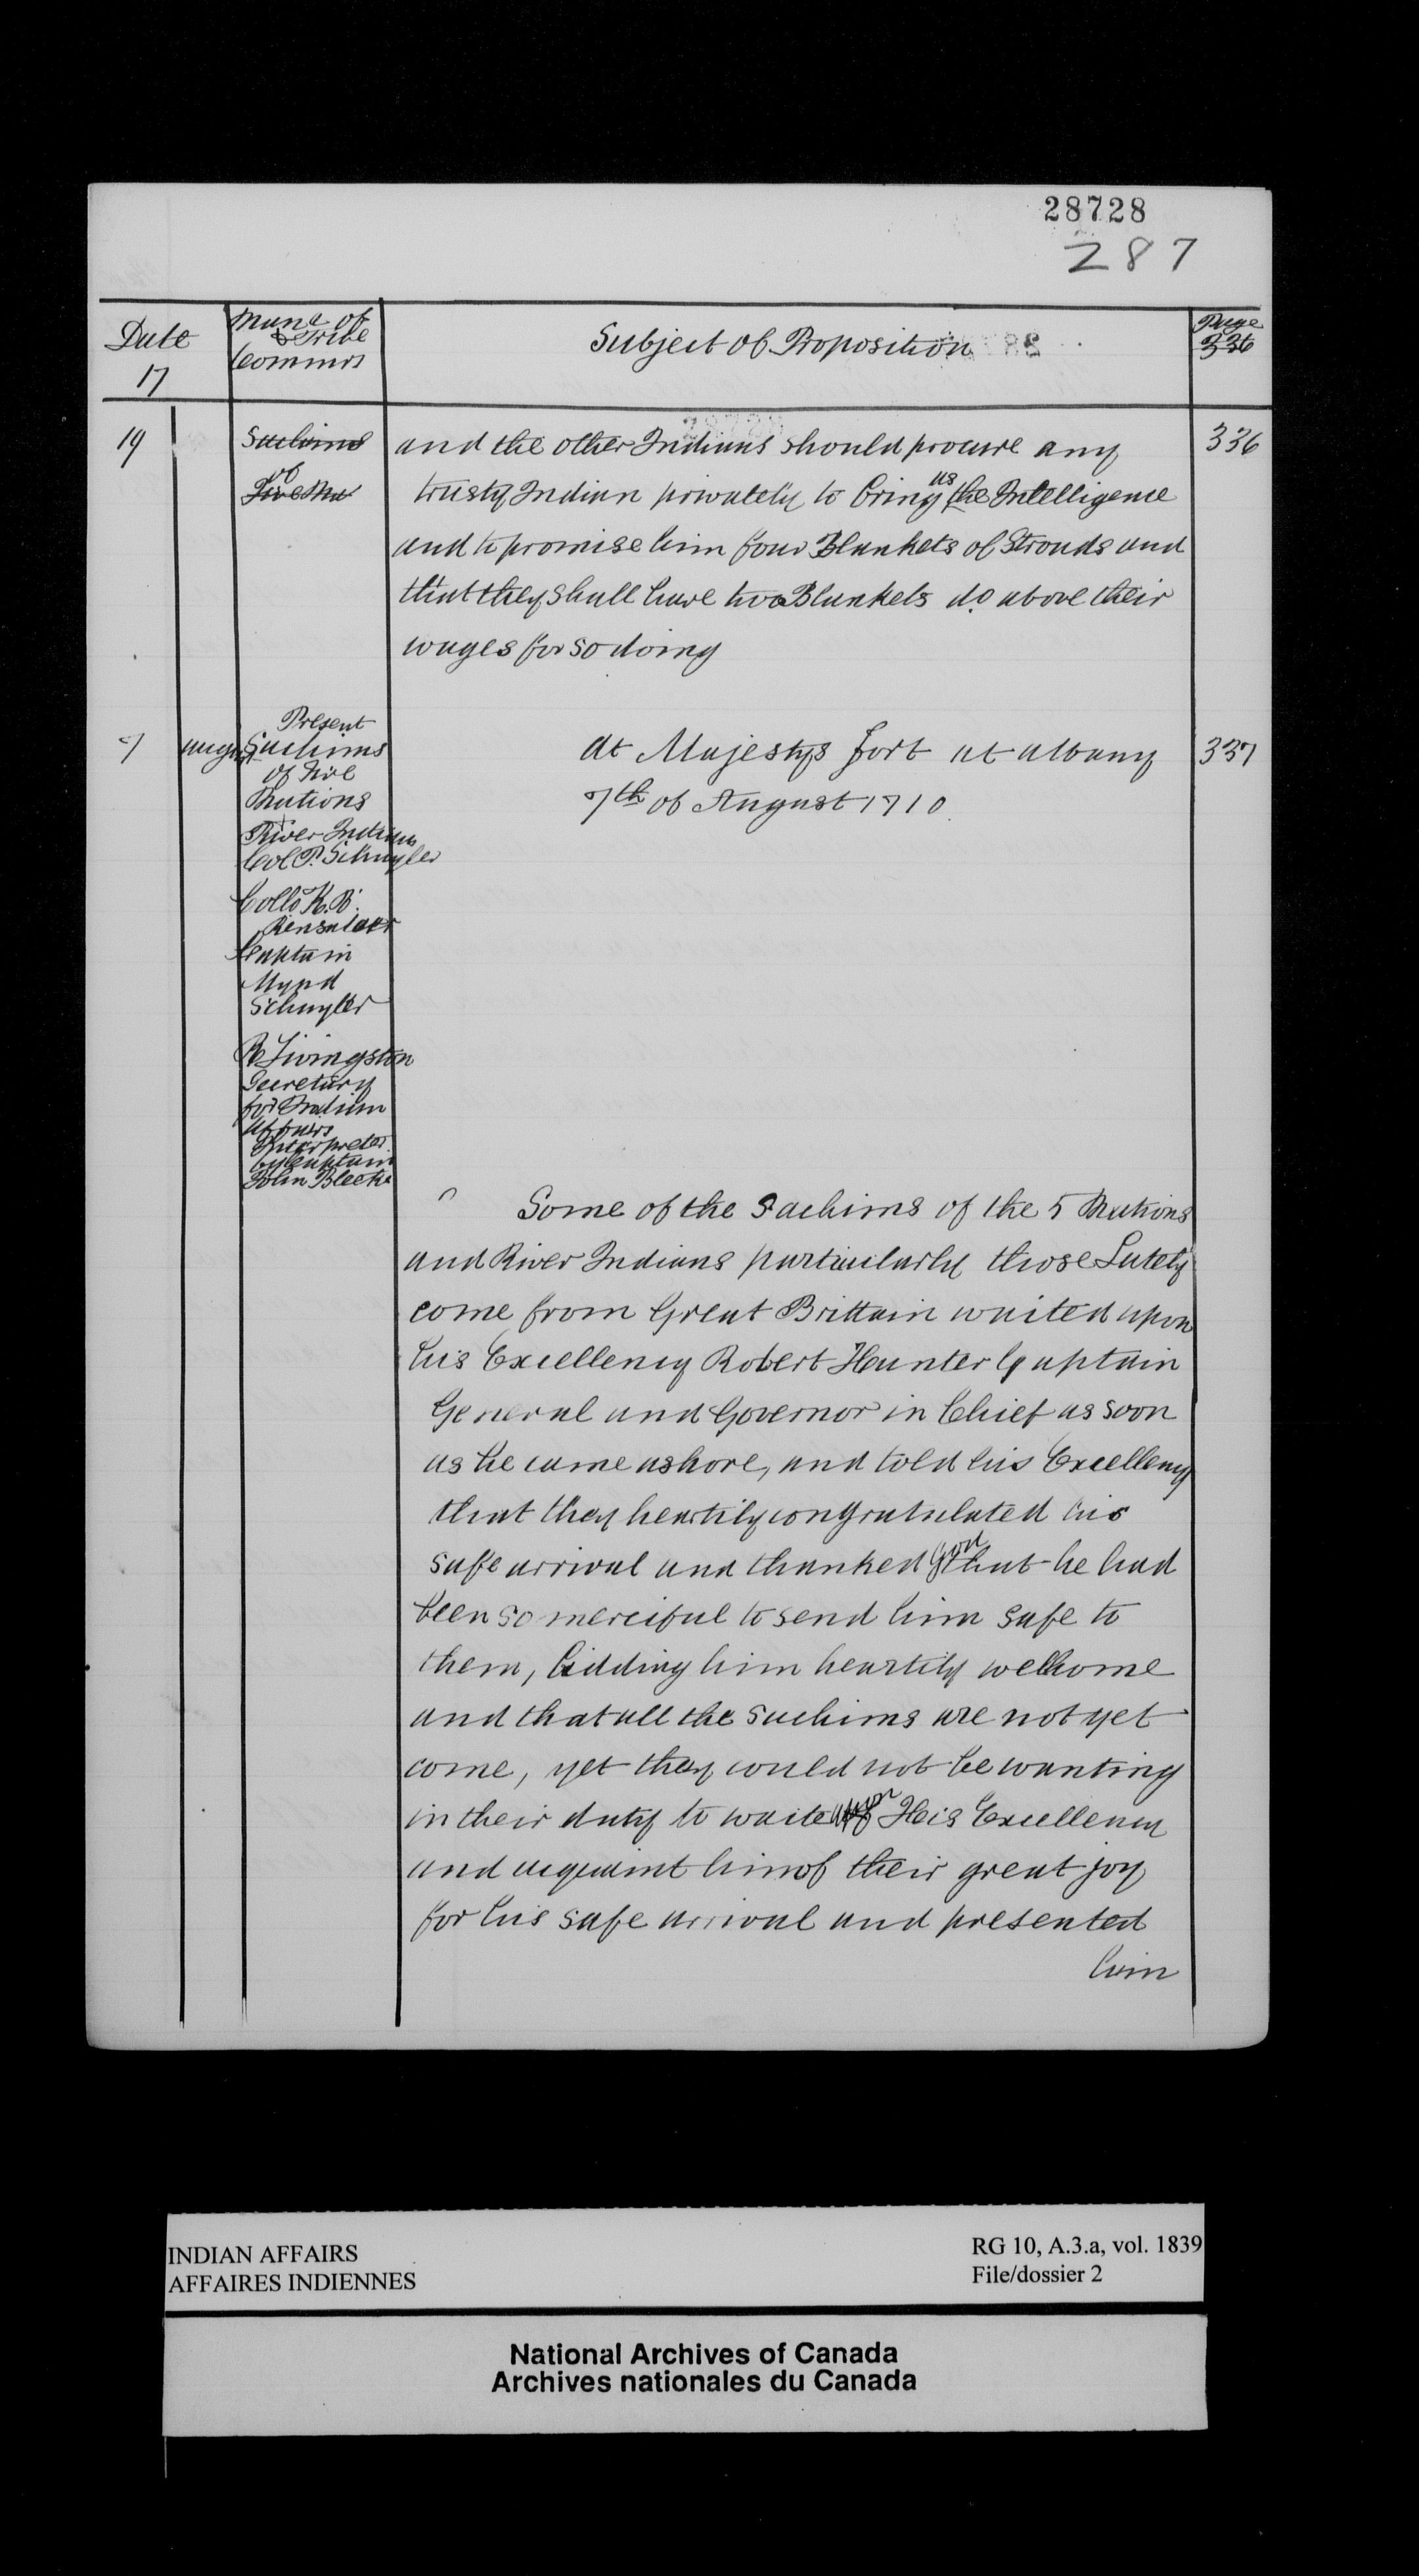 28728
287
Date
17
Name of
& Tribe
Commrs
Subject of Proposition
Page
336
19
Sachims
of
Five Na
and the other Indians should procure any
trusty Indian privately to bring us the Intelligence
and to promise him four Blankets of Strouds and
that they shall have two Blankets do above their
wages for so doing
336
7 August
Present
Sachims
of Five
Nations
+
River Indians
Col P. Schuyler
Collo K. B.
Renselaer
Captain
Mynd
Schuyler
R Livingston
Secretary
for Indian
Affairs
Interpreter
by Captain
John Bleeke
At Majestys Fort at Albany
7th of August 1710
337
Some of the Sachims of the 5 Nations
and River Indians particularly those Lately
come from Great Brittain waited upon
his Excellency Robert Hunter Captain
General and Governor in Chief as soon
as he came ashore, and told his Excellency
that they heartily congratulated his
safe arrival and thanked God that he had
been so merciful to send him safe to
them, bidding him heartily wellcome
and that all the Sachims are not yet
come, yet they could not be wanting
in their duty to waite upon His Excellency
and acquaint him of their great joy
for his safe arrival and presented
him
INDIAN AFFAIRS
AFFAIRES INDIENNES
RG 10, A.3.a, vol. 1839
File/dossier 2
National Archives of Canada
Archives nationales du Canada